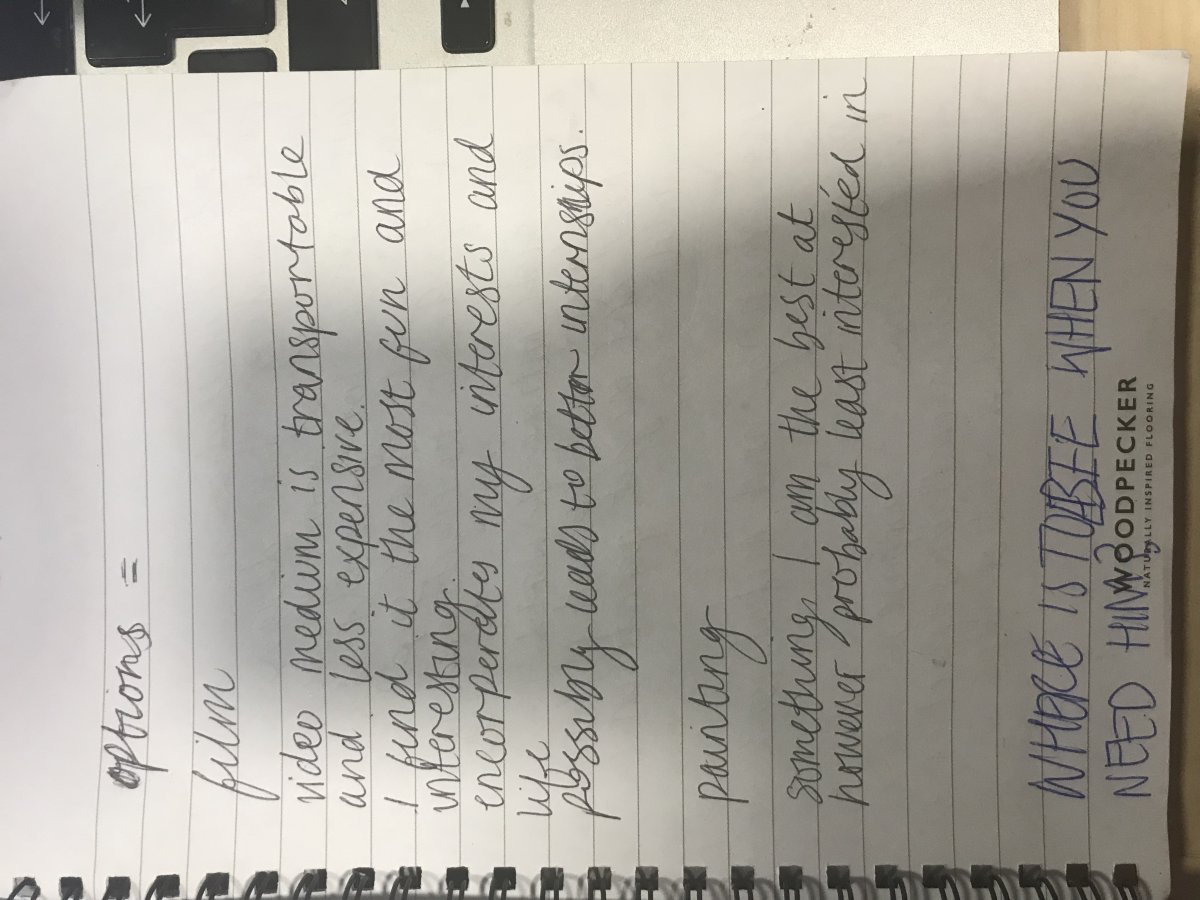 options =
film
video medium is transportable
and less expensive.
I find it the most fun and
interesting.
encorperates my interests and
life
possibly leads to better internships.
painting
something I am the best at
however probably least interested in
WHERE IS TOBEE WHEN YOU
NEED HIM?
WOODPECKER
NATURALLY INSPIRED FLOORING